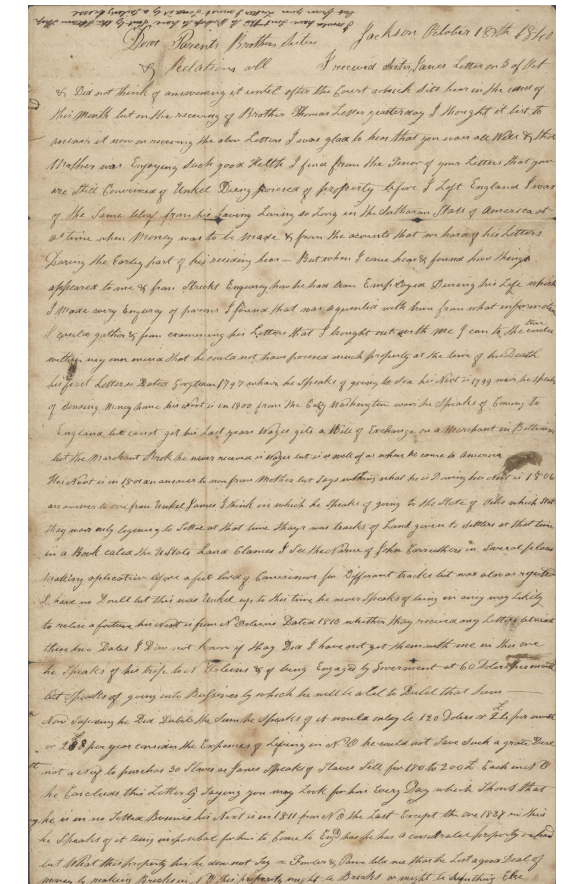 Jackson October 18th 1840
Dear Parents Brothers Sisters
& Relations all I received Sister Janes Letter on 5 of Oct
& Did not think of answering it untill after the Court which sits hear in the end of
this Month but on the receiving of Brother Thomas Letter yesterday I thought it best to
answer it now on receiving the abov Letters I was glad to hear that you warr all Well & that
Mother was Enjoying Such good Helth I find from the Tenor of your Letters that you
are Still Convinced of Unkel Dieing posesed of property before I Left England I was
of the Same belef from his having Living so Long in the Southaran Stats of America at
a time when Money was to be Made & from the acounts that we hard of his Letters
During the Earley part of his residing hear — But when I come hear & found how things
appeared to me & from Strickt Enquirey how he had ben Employed During his Life which
I made every Enquirey of persons I found that was aquented with him from what information
I could gather & from examining his Letters that I brought out with me I can to the
within my own mind that he could not have posesed much property at the time of his Death
his first Letter is Dated 1797 wharin he Speaks of going to Sea his Next is 1799 warin he Speaks
of Sending Money home his Next is in 1800 from the City Washington warin he Speaks of Coming to
England but canot get his Last years Wages gets a Bill of Exchange on a Merchant in
but the Merchant Brok he never receved is Wages but is as well of as when he come to America
His Next is in 1801 an answer to won from Mother but Says nothing what he is Doing his Next is 1806
an answer to one from Unkel James I think in which he Speaks of going to the State of Ohio which Stat
thay war only begining to Settel at that time Thayr was tracks of Land given to settlers at that time
in a Book caled the U State Land Clames I See the Name of John Carruthers in Several places
Making aplication before a Board of Comisioners for Differant tracks but was always rejected
I have no Doubt but this was Unkel up to this time he never Speaks of being in aney way Likely
to relise a fortune his Next is from N Orleans Dated 1810 whether thay received any Letters between
these two Dates I Dow not know if thay Did I have not got them with me in this one
he Speaks of his trip to N Orleans & of being Engaged by Goverment at 60 Dolars per month
but Speaks of going into Bussines by which he will be abel to Dubel that Sum —
Now Suposing he Did Dubel the Sum he Speaks of it would onley be 120 Dolers or £24 per month
or £288 per year consider the Expences of Liveing in N O he could not Save Such a grate Deal
not anuf to purches 30 Slaves as Janes Speaks of Slaves Sell for 150 to 200£ Each in N O
he Concludes this Letter by Saying you may Look for him Every Day which Shows that
he is in no Setled Bussines his Next is in 1811 from N O the Last Except the one 1827 in this
he Speaks of it being imposibel for him to Come to Engd has he has a considrabel property
but What this property his he does not Say — Fowler & Pain tels me that he Lost a good Deal of
money by making Breaks in N O this property might be Breaks or might be Sumthing Else